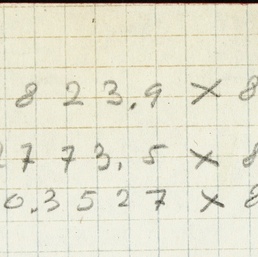 823.9 × 8
2773.5 × 8
0.3527 × 8